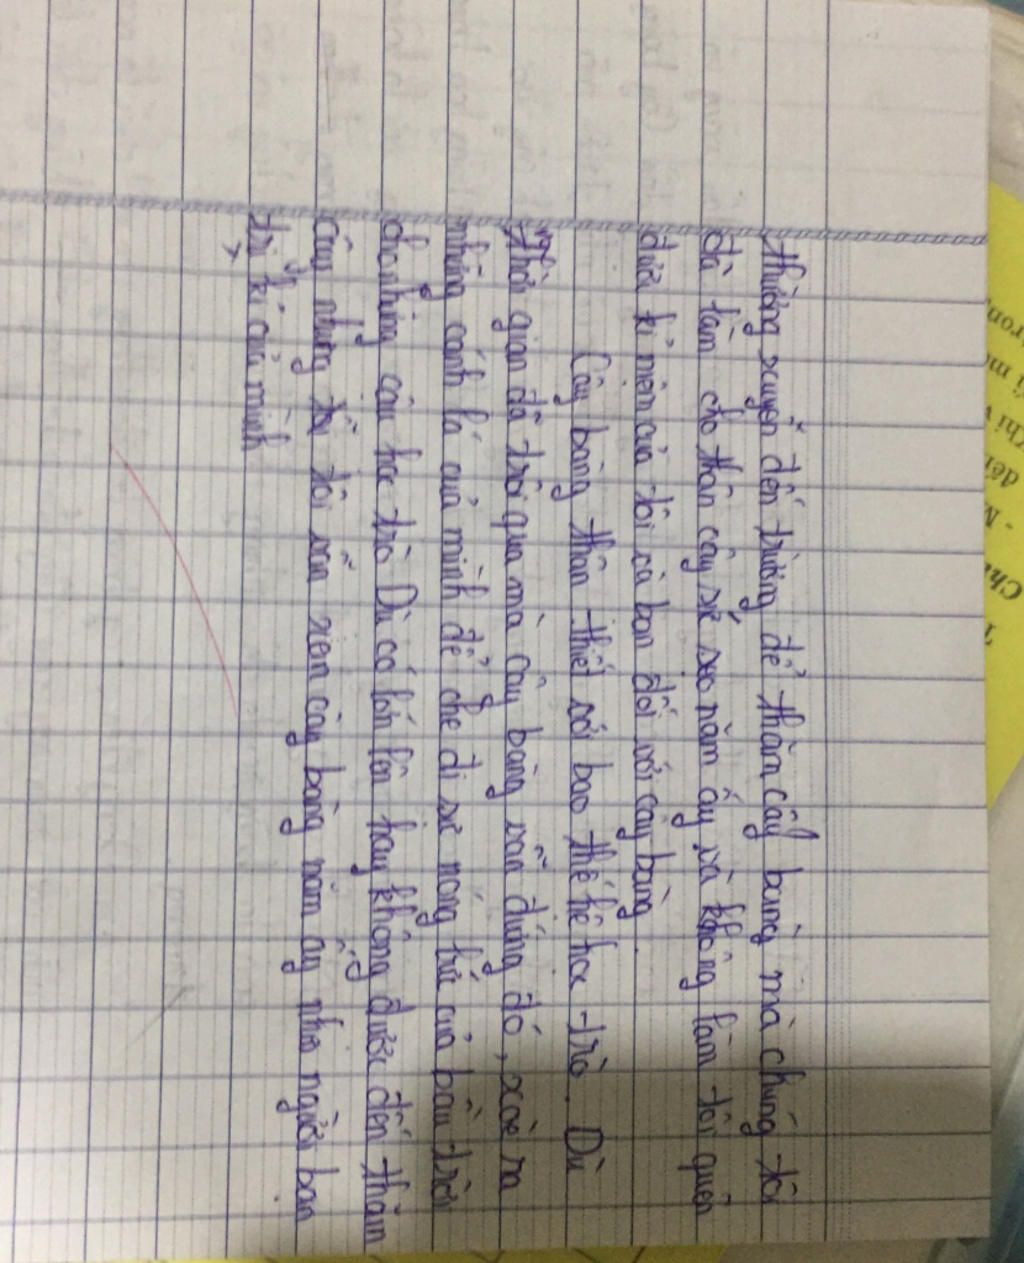 thường xuyên đến trường để thăm cây bàng mà chúng tôi
đã làm cho thân cây sứt sẹo năm ấy và không làm tôi quên
được kỉ niệm của tôi cà bạn đối với cây bàng.
Cây bàng thân thiết với bao thế hệ học trò. Dù
thời gian đã trôi qua mà cây bàng vẫn đứng đó, xoè ra
những cánh lá của mình để che đi sự nóng bức của bầu trời
cho những cậu học trò Dù có lớn lên hay không được đến thăm
cây nhưng tôi vẫn xem cây bàng năm ấy như người bạn
tri kỉ của mình